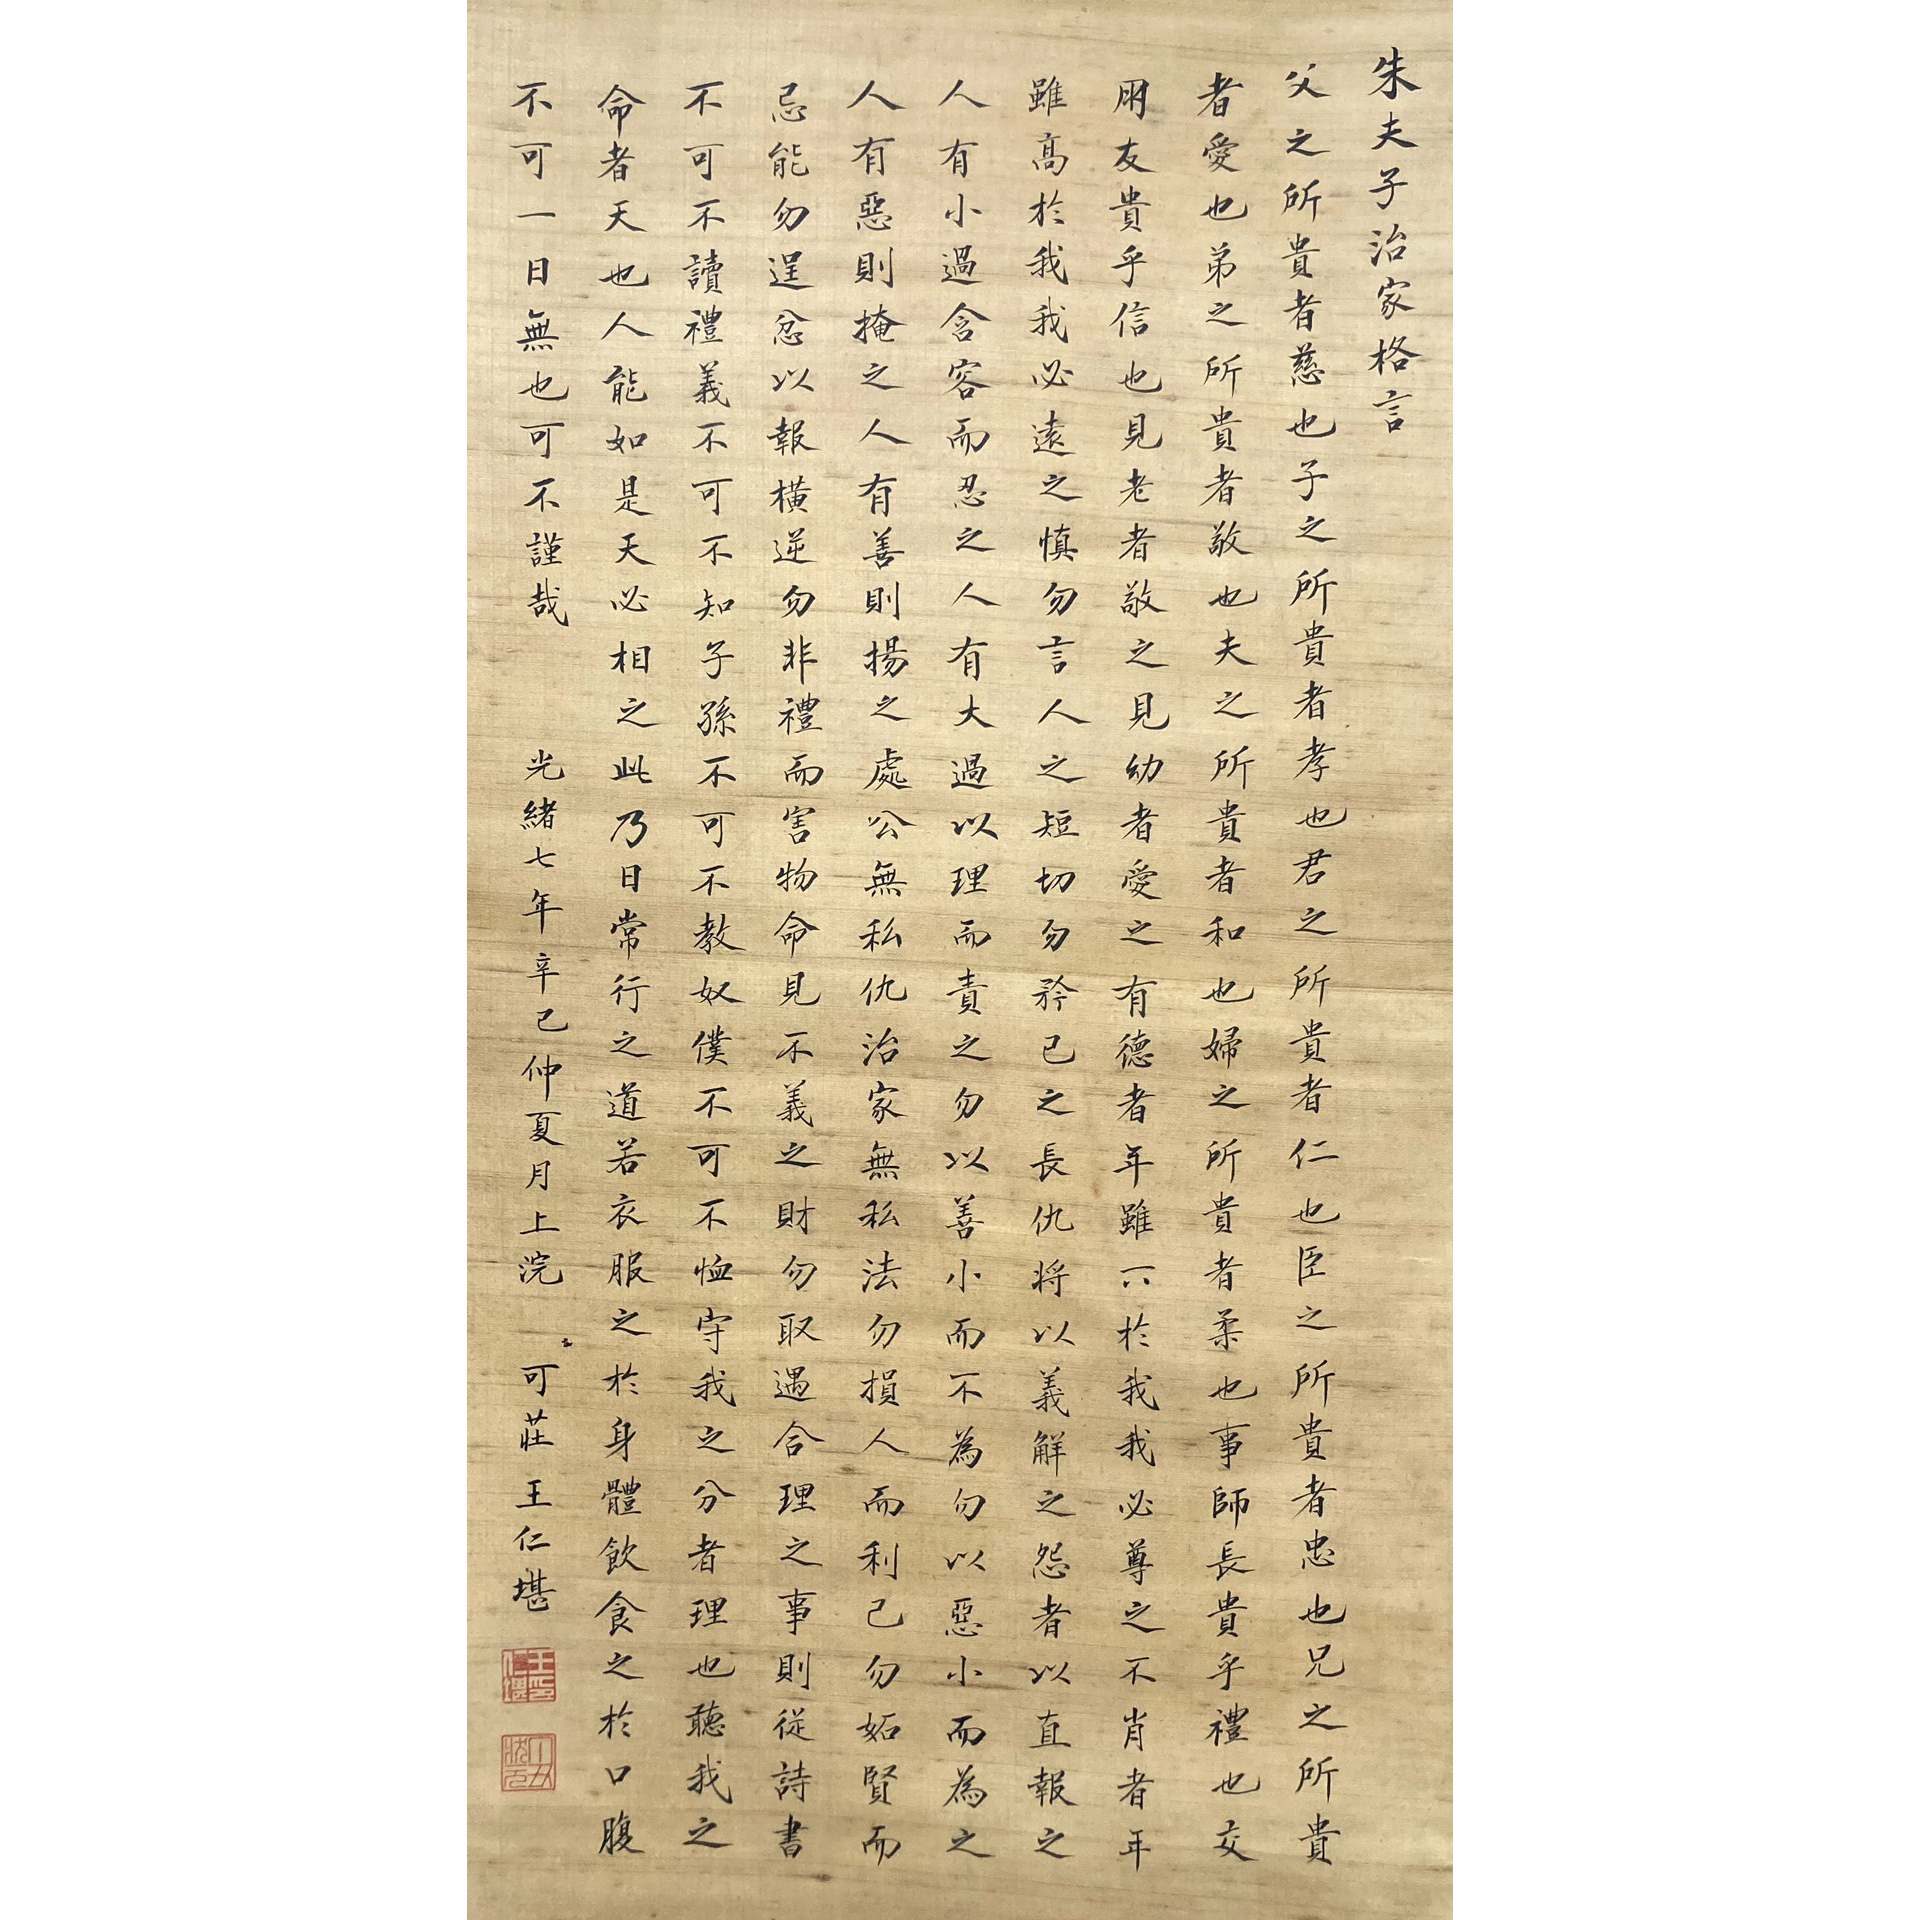 朱夫子治家格言
父之所貴者慈也子之所貴者孝也君之所貴者仁也臣之所貴者忠也兄之所貴
者愛也弟之所貴者敬也夫之所貴者和也婦之所貴者柔也事師長貴乎禮也交
朋友貴乎信也見老者敬之見幼者愛之有德者年雖下於我我必尊之不肖者年
雖高於我我必遠之慎勿言人之短切勿矜己之長仇將以義解之怨者以直報之
人有小過含容而忍之人有大過以理而責之勿以善小而不為勿以惡小而為之
人有惡則掩之人有善則揚之處公無私仇治家無私法勿損人而利己勿妬賢而
忌能勿逞忿以報橫逆勿非禮而害物命見不義之財勿取遇合理之事則從詩書
不可不讀禮義不可不知子孫不可不教奴僕不可不恤守我之分者理也聽我之
命者天也人能如是天必相之此乃日常行之道若衣服之於身體飲食之於口腹
不可一日無也可不謹哉
光緒七年辛己仲夏月上浣
可莊王仁堪
王仁堪印
丁丑狀元